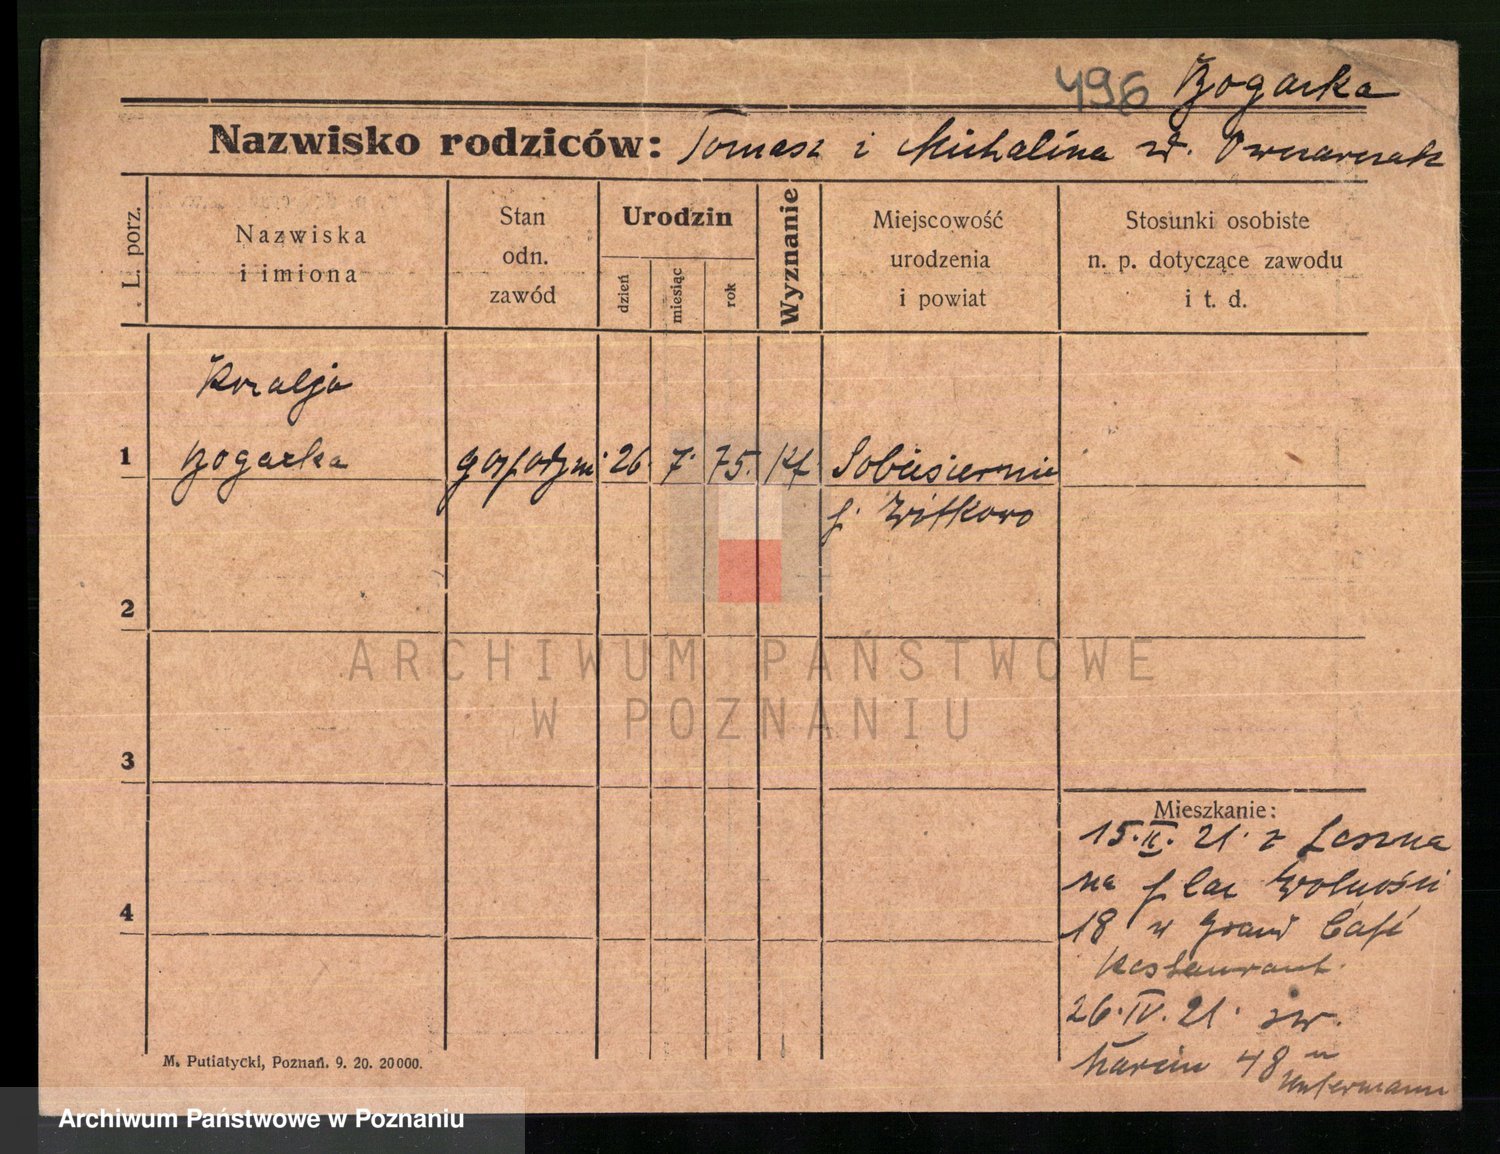 496 Bogacka
Nazwisko rodziców: Tomasz i Michalina zd. Owczarczak
L. porz.
Nazwiska
i imiona
Stan
odn.
zawód
Urodzin
dzień
miesiąc
rok
Wyznanie
Miejscowość
urodzenia
i powiat
Stosunki osobiste
n. p. dotyczące zawodu
i t. d.
Rozalja
1 Bogacka gospodyni 26. 7. 75. Kt Sobiesiernie
p. Witkowo
2
ARCHIWUM PAŃSTWOWE
W POZNANIU
3
Mieszkanie:
15.II.21. z Leszna
na plac Wolności
18 u Grand Café
Restaurant.
4
26.IV.21. św.
Marcin 48 u
M. Putiatycki, Poznań. 9. 20. 20000.
Archiwum Państwowe w Poznaniu